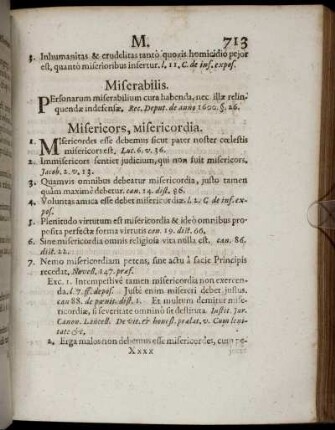 M. 713
3. Inhumanitas & crudelitas tantò quovis homicidio pejor
est, quantò miserioribus infertur. l. 11. C. de inf. expos.
Miserabilis.
PErsonarum miserabilium cura habenda, nec illæ relin-
quendæ indefensæ. Rec. Deput. de anno 1600. §. 26.
Misericors, misericordia.
1. MIsericordes esse debemus sicut pater noster cœlestis
misericors est, Luc. 6. v. 36.
2. Immisericors sentiet judicium, qui non fuit misericors,
Jacob. 2. v. 13.
3. Quamvis omnibus debeatur misericordia, justo tamen
quàm maximè debetur. can. 14. dist. 86.
4. Voluntas amica esse debet misericordiæ. l. 2. C de inf. ex-
pos.
5. Plenitudo virtutum est misericordia & ideò omnibus pro-
posita perfectæ forma virtutis can. 19. dist. 66.
6. Sine misericordia omnis religiosa vita nulla est. can. 86.
dist. 22.
7. Nemo misericordiam petens, sine actu à facie Principis
recedat, Novell. 247. præf.
Exc. 1. Intempestivè tamen misericordia non exercen-
da. l. 7. ff. depos. Justè enim misereri debet justus.
can 88. de pœnit. dist. 1. Et multum demitur mise-
ricordiæ, si severitate omninò sit destituta. Instit. Jur.
Canon. Lancell. De vit. & honest. prælat. v. Cum leni-
tate &c.
2. Erga malos non debemus esse misericordes, cum pe-
Xxxx